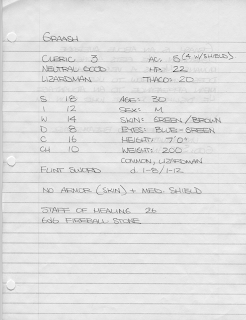 GRAASH
CLERIC 3 AC: 5 (4 W/SHIELD)
NEUTRAL GOOD HP: 22
LIZARDMAN THACO: 20
S 18 AGE: 30
I 12 SEX: M
W 14 SKIN: GREEN / BROWN
D 8 EYES: BLUE-GREEN
C 16 HEIGHT: 7'0"
CH 10 WEIGHT: 200
COMMON, LIZARDMAN
FLINT SWORD d. 1-8/1-12
NO ARMOR (SKIN) + MED. SHIELD
STAFF OF HEALING 26
6d6 FIREBALL STONE